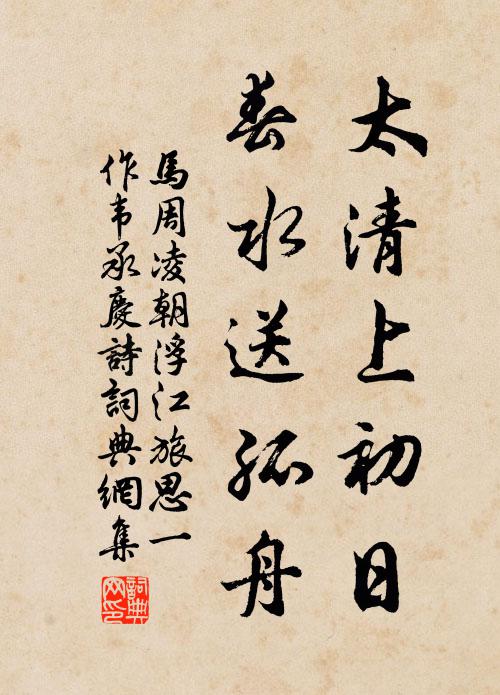 太清上初日
春水送孤舟
馬周凌朝浮江旅思一
作韦承慶詩詞典網集
詞典
网印